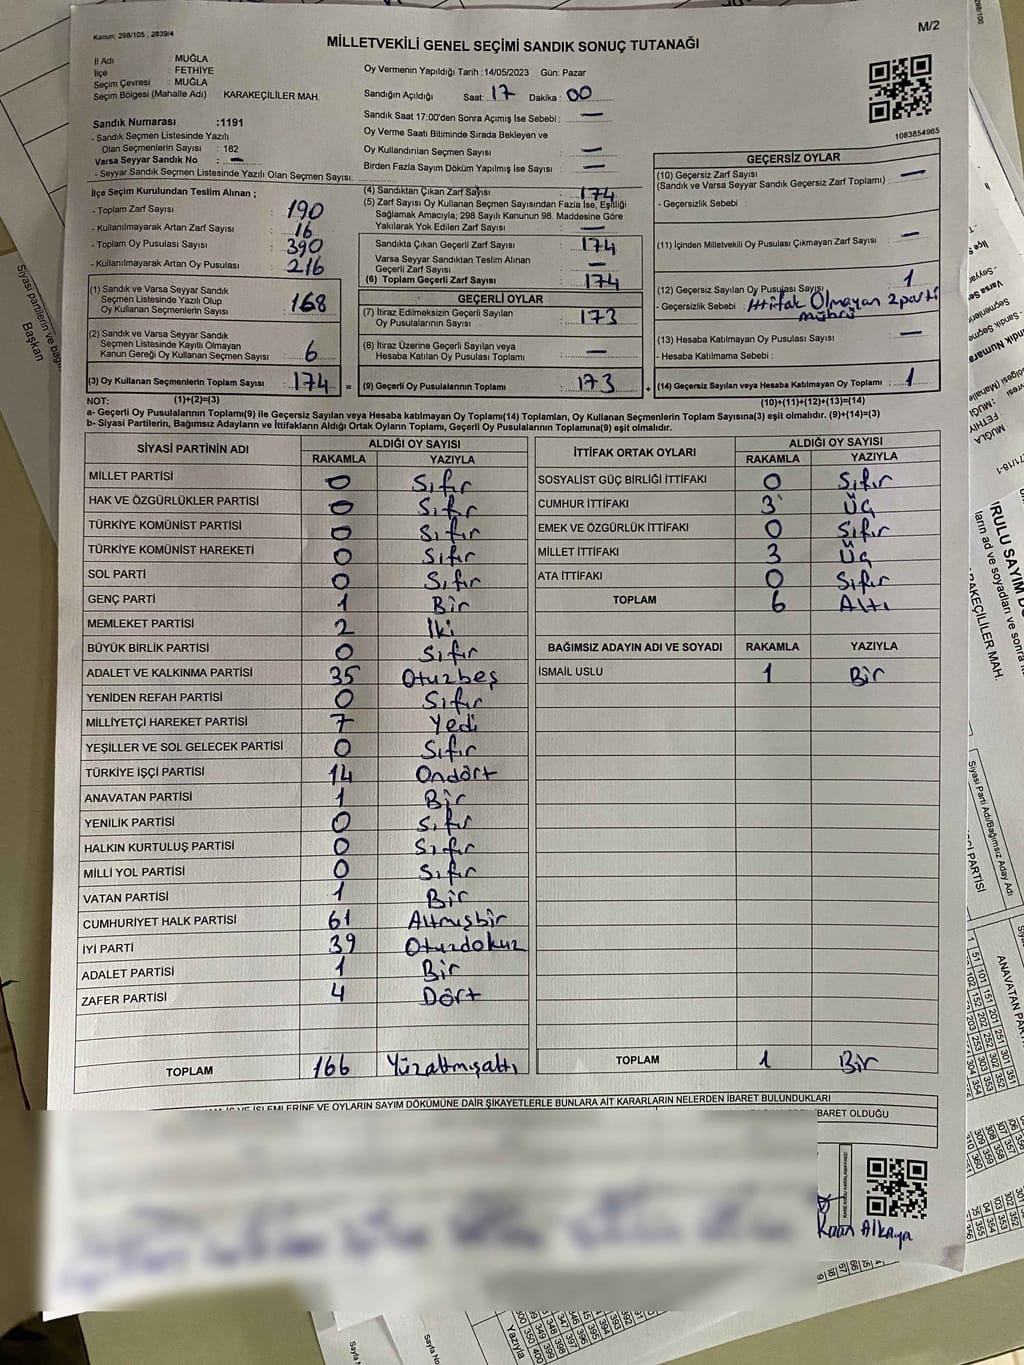 Kanun: 298/105 , 2839/4
M/2
MİLLETVEKİLİ GENEL SEÇİMİ SANDIK SONUÇ TUTANAĞI
İl Adı : MUĞLA
İlçe : FETHİYE
Seçim Çevresi : MUĞLA
Seçim Bölgesi (Mahalle Adı) KARAKEÇİLİLER MAH.
Sandık Numarası :1191
- Sandık Seçmen Listesinde Yazılı
Olan Seçmenlerin Sayısı : 182
Varsa Seyyar Sandık No : —
- Seyyar Sandık Seçmen Listesinde Yazılı Olan Seçmen Sayısı:
Oy Vermenin Yapıldığı Tarih :14/05/2023 Gün: Pazar
Sandığın Açıldığı Saat: 17 Dakika: 00
Sandık Saat 17:00'den Sonra Açımış İse Sebebi : —
Oy Verme Saati Bitiminde Sırada Bekleyen ve
Oy Kullandırılan Seçmen Sayısı —
Birden Fazla Sayım Döküm Yapılmış İse Sayısı : —
1083854965
İlçe Seçim Kurulundan Teslim Alınan ;
- Toplam Zarf Sayısı : 190
- Kullanılmayarak Artan Zarf Sayısı : 16
- Toplam Oy Pusulası Sayısı : 390
- Kullanılmayarak Artan Oy Pusulası : 216
(1) Sandık ve Varsa Seyyar Sandık
Seçmen Listesinde Yazılı Olup
Oy Kullanan Seçmenlerin Sayısı : 168
(2) Sandık ve Varsa Seyyar Sandık
Seçmen Listesinde Kayıtlı Olmayan
Kanun Gereği Oy Kullanan Seçmen Sayısı : 6
(3) Oy Kullanan Seçmenlerin Toplam Sayısı : 174 =
(4) Sandıktan Çıkan Zarf Sayısı : 174
(5) Zarf Sayısı Oy Kullanan Seçmen Sayısından Fazla İse, Eşitliği
Sağlamak Amacıyla; 298 Sayılı Kanunun 98. Maddesine Göre
Yakılarak Yok Edilen Zarf Sayısı : —
Sandıkta Çıkan Geçerli Zarf Sayısı : 174
Varsa Seyyar Sandıktan Teslim Alınan
Geçerli Zarf Sayısı : —
(6) Toplam Geçerli Zarf Sayısı : 174
GEÇERLİ OYLAR
(7) İtiraz Edilmeksizin Geçerli Sayılan
Oy Pusulalarının Sayısı : 173
(8) İtiraz Üzerine Geçerli Sayılan veya
Hesaba Katılan Oy Pusulası Toplamı : —
(9) Geçerli Oy Pusulalarının Toplamı : 173 +
GEÇERSİZ OYLAR
(10) Geçersiz Zarf Sayısı
(Sandık ve Varsa Seyyar Sandık Geçersiz Zarf Toplamı) : —
- Geçersizlik Sebebi :
(11) İçinden Milletvekili Oy Pusulası Çıkmayan Zarf Sayısı : —
(12) Geçersiz Sayılan Oy Pusulası Sayısı : 1
- Geçersizlik Sebebi : İttifak Olmayan 2 parti
mührü
(13) Hesaba Katılmayan Oy Pusulası Sayısı : —
- Hesaba Katılmama Sebebi :
(14) Geçersiz Sayılan veya Hesaba Katılmayan Oy Toplamı : 1
NOT: (1)+(2)=(3) (10)+(11)+(12)+(13)=(14)
a- Geçerli Oy Pusulalarının Toplamı(9) ile Geçersiz Sayılan veya Hesaba katılmayan Oy Toplamı(14) Toplamları, Oy Kullanan Seçmenlerin Toplam Sayısına(3) eşit olmalıdır. (9)+(14)=(3)
b- Siyasi Partilerin, Bağımsız Adayların ve İttifakların Aldığı Ortak Oyların Toplamı, Geçerli Oy Pusulalarının Toplamına(9) eşit olmalıdır.
SİYASİ PARTİNİN ADI ALDIĞI OY SAYISI
RAKAMLA YAZIYLA
MİLLET PARTİSİ 0 Sıfır
HAK VE ÖZGÜRLÜKLER PARTİSİ 0 Sıfır
TÜRKİYE KOMÜNİST PARTİSİ 0 Sıfır
TÜRKİYE KOMÜNİST HAREKETİ 0 Sıfır
SOL PARTİ 0 Sıfır
GENÇ PARTİ 1 Bir
MEMLEKET PARTİSİ 2 İki
BÜYÜK BİRLİK PARTİSİ 0 Sıfır
ADALET VE KALKINMA PARTİSİ 35 Otuzbeş
YENİDEN REFAH PARTİSİ 0 Sıfır
MİLLİYETÇİ HAREKET PARTİSİ 7 Yedi
YEŞİLLER VE SOL GELECEK PARTİSİ 0 Sıfır
TÜRKİYE İŞÇİ PARTİSİ 14 Ondört
ANAVATAN PARTİSİ 1 Bir
YENİLİK PARTİSİ 0 Sıfır
HALKIN KURTULUŞ PARTİSİ 0 Sıfır
MİLLİ YOL PARTİSİ 0 Sıfır
VATAN PARTİSİ 1 Bir
CUMHURİYET HALK PARTİSİ 61 Altmışbir
İYİ PARTİ 39 Otuzdokuz
ADALET PARTİSİ 1 Bir
ZAFER PARTİSİ 4 Dört
TOPLAM 166 Yüzaltmışaltı
İTTİFAK ORTAK OYLARI ALDIĞI OY SAYISI
RAKAMLA YAZIYLA
SOSYALİST GÜÇ BİRLİĞİ İTTİFAKI 0 Sıfır
CUMHUR İTTİFAKI 3 Üç
EMEK VE ÖZGÜRLÜK İTTİFAKI 0 Sıfır
MİLLET İTTİFAKI 3 Üç
ATA İTTİFAKI 0 Sıfır
TOPLAM 6 Altı
BAĞIMSIZ ADAYIN ADI VE SOYADI RAKAMLA YAZIYLA
İSMAİL USLU 1 Bir
TOPLAM 1 Bir
İŞLEMLERİNE VE OYLARIN SAYIM DÖKÜMÜNE DAİR ŞİKAYETLERLE BUNLARA AİT KARARLARIN NELERDEN İBARET BULUNDUKLARI
İBARET OLDUĞU
Kaan Alkaya